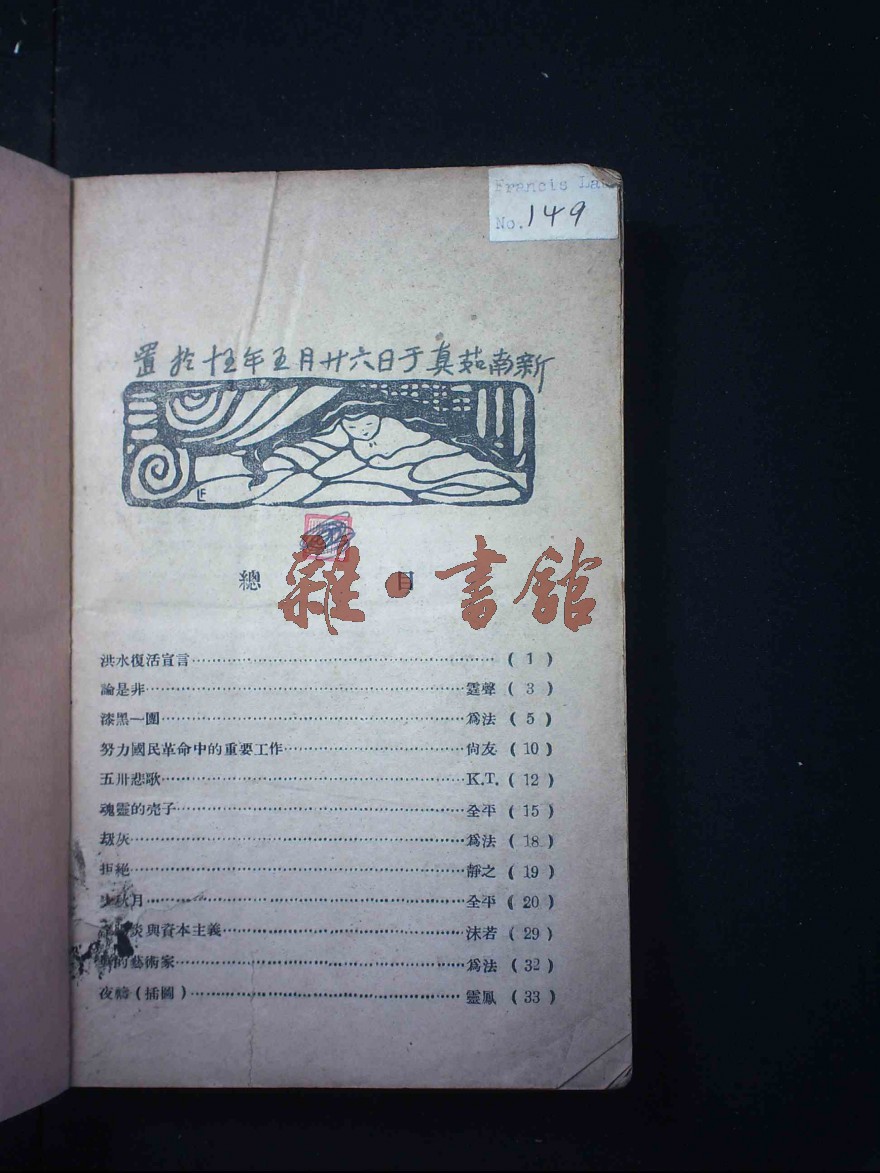 Francis La
No. 149
置於十五年五月廿六日于真茹南新
LF
總目
雜·書館
洪水復活宣言 (1)
論是非 霆聲 (3)
漆黑一團 爲法 (5)
努力國民革命中的重要工作 尙友 (10)
五卅悲歌 K.T. (12)
魂靈的壳子 全平 (15)
刼灰 爲法 (18)
拒絕 靜之 (19)
秋月 全平 (20)
炎與資本主義 沫若 (29)
的藝術家 爲法 (32)
夜禱(插圖) 靈鳳 (33)